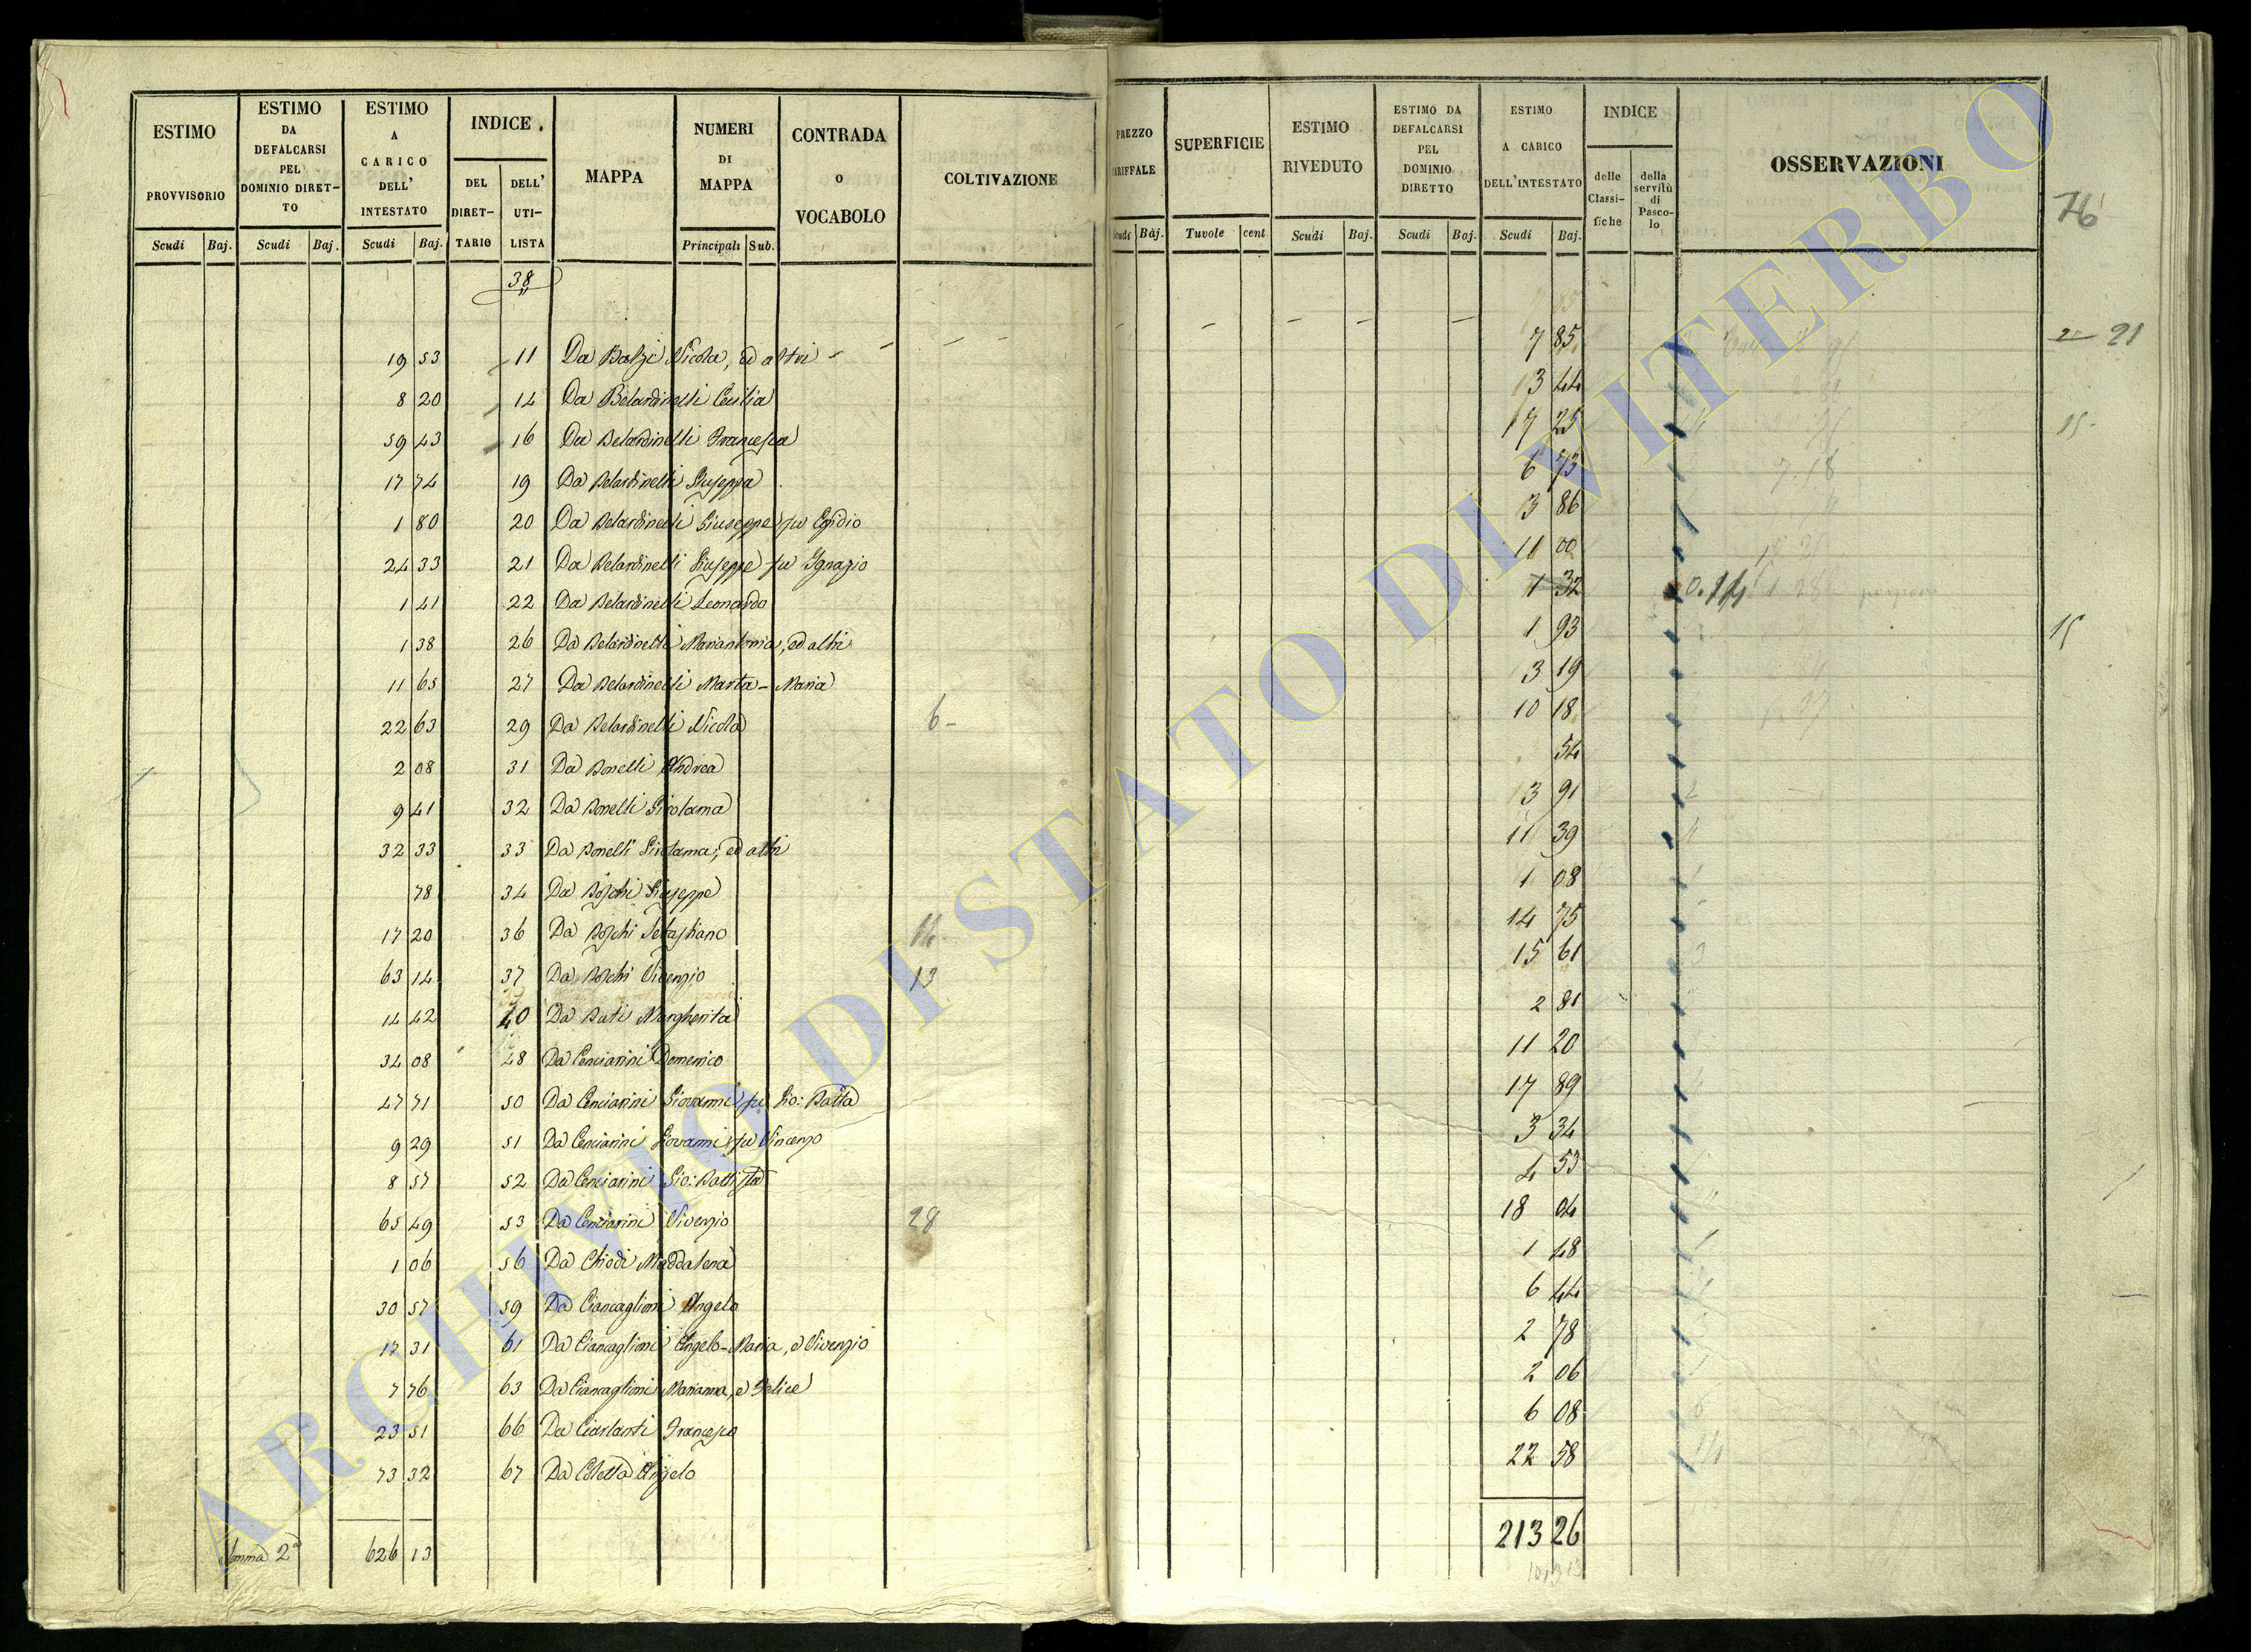 ESTIMO PROVVISORIO Scudi Baj.
ESTIMO DA DEFALCARSI PEL DOMINIO DIRET- TO Scudi Baj.
ESTIMO A CARICO DELL' INTESTATO Scudi Baj.
INDICE. DEL DIRET- TARIO DELL' UTI- LISTA
MAPPA
NUMERI DI MAPPA Principali Sub.
CONTRADA o VOCABOLO
COLTIVAZIONE
PREZZO TARIFFALE Scudi Baj.
SUPERFICIE Tavole cent
ESTIMO RIVEDUTO Scudi Baj.
ESTIMO DA DEFALCARSI PEL DOMINIO DIRETTO Scudi Baj.
ESTIMO A CARICO DELL'INTESTATO Scudi Baj.
INDICE delle Classi- fiche della servitù di Pasco- lo
OSSERVAZIONI
76
38
19 53 11 Da Balzi Nicola, ed altri 7 85 21
8 20 14 Da Belardinelli Cecilia 3 44
59 43 16 Da Belardinelli Francesca 17 25 15
17 74 19 Da Belardinelli Giuseppa 6 73
1 80 20 Da Belardinelli Giuseppe fu Egidio 3 86
24 33 21 Da Belardinelli Giuseppe fu Ignazio 11 00
1 41 22 Da Belardinelli Leonardo 1 32 0.14
1 38 26 Da Belardinelli Mariantonia, ed altri 1 93 15
11 65 27 Da Belardinelli Marta-Maria 3 19
22 63 29 Da Belardinelli Nicola 6 - 10 18
2 08 31 Da Bonelli Andrea 54
9 41 32 Da Bonelli Girolama 3 91
32 33 33 Da Bonelli Girolama, ed altri 11 39
78 34 Da Boschi Giuseppe 1 08
17 20 36 Da Boschi Sebastiano 14 14 75
63 14 37 Da Boschi Vivenzio 13 15 61
14 42 40 Da Buti Margherita 2 81
34 08 48 Da Cenciarini Domenico 11 20
47 71 50 Da Cenciarini Giovanni fu Gio: Batta 17 89
9 29 51 Da Cenciarini Giovanni fu Vincenzo 3 34
8 57 52 Da Cenciarini Gio: Battista 4 53
65 49 53 Da Cenciarini Vivenzio 28 18 04
1 06 56 Da Chiodi Maddalena 1 48
30 57 59 Da Ciancaglioni Angelo 6 44
17 31 61 Da Ciancaglioni Angelo-Maria, e Vivenzio 2 78
7 76 63 Da Ciancaglioni Marianna, e Felice 2 06
23 51 66 Da Ciarlanti Francesco 6 08
73 32 67 Da Coletta Angelo 22 58
Somma 2ª 626 13 213 26
ARCHIVIO DI STATO DI VITERBO